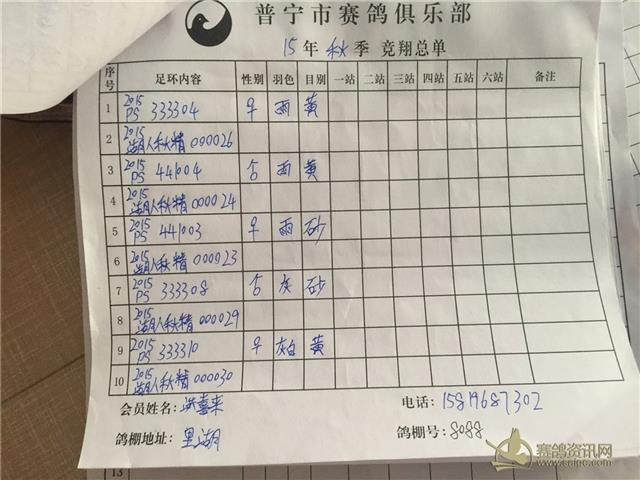 普宁市赛鸽俱乐部
15年 秋季 竞翔总单
序号 足环内容 性别 羽色 目别 一站 二站 三站 四站 五站 六站 备注
1 2015 PS 333304 早 雨 黄
2 2015 湖人秋精 000026
3 2015 PS 441004 台 雨 黄
4 2015 湖人秋精 000024
5 2015 PS 441003 早 雨 砂
6 2015 湖人秋精 000023
7 2015 PS 333308 台 灰 砂
8 2015 湖人秋精 000029
9 2015 PS 333310 早 灰白 黄
10 2015 湖人秋精 000030
会员姓名:洪喜来 电话:15819687302
鸽棚地址:里湖 鸽棚号:8088
13
赛鸽资讯网
www.saige.com